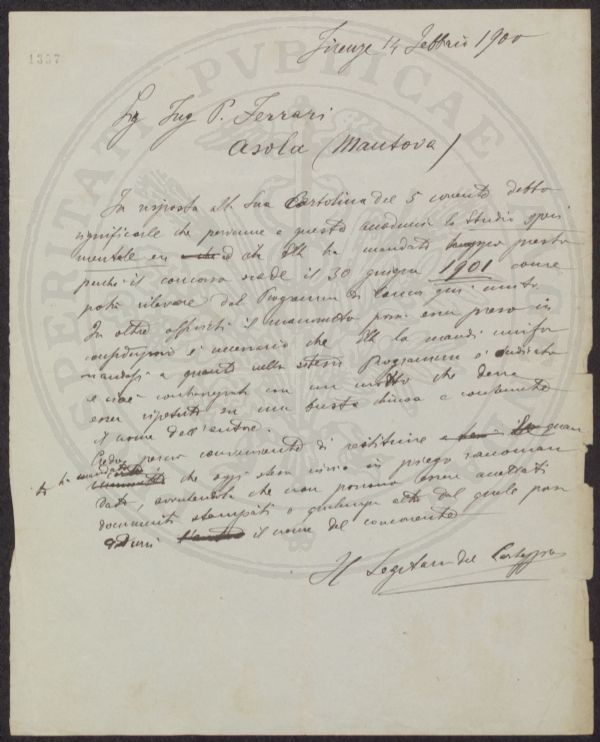 1337
Firenze 14 Febbraio 1900
Sig Ing P. Ferrari
Asola (Mantova)
In risposta alla Sua Cartolina del 5 corrente debbo
significarle che pervenne a questa Accademia lo Studio speri
mentale ed che Ella ha mandato troppo presto
perchè il concorso scade il 30 giugno 1901 come
potrà rilevare dal Programma di Concorso qui unito.
In oltre affinchè il manoscritto possa esser preso in
è necessario che Ella lo mandi unifor
mandosi a quanto nello stesso Programma è indicato
e cioè contrassegnato con un motto che dovrà
esser ripetuto su una busta chiusa e contenente
il nome dell'autore.
Credo perciò conveniente di restituire quan
to ha mandato che oggi stesso invio in piego raccoman
dato, avvertendola che non possono essere accettati
documenti stampati o qualunque altro dal quale possa
il nome del concorrente
Il Segretario del
PVBLICAE